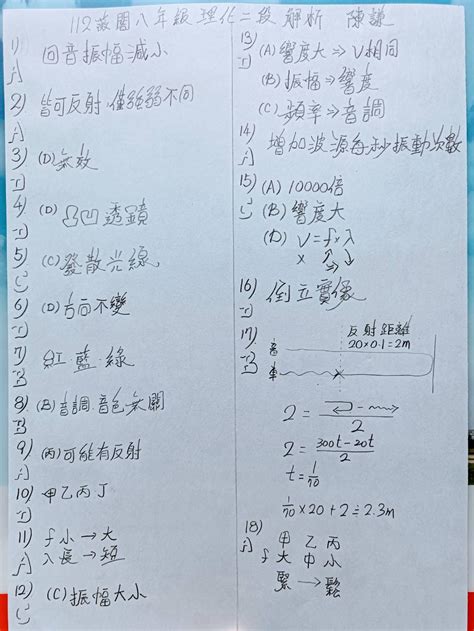 112 菽園八年級 理化二段 解析 陳謙
1) 回音振幅減小
A
2) 皆可反射.僅強弱不同
A
3) (D)無效
D
4) (D) 凸凹透鏡
D
5) (C)發散光線
C
6) (D)方向不變
D
7) 紅.藍.綠
B
8) (B)音調.音色無關
B
9) (丙)可能有反射
A
10) 甲乙丙丁
D
11) f 小→大
A λ長→短
12) (C)振幅大小
C
13) (A)響度大⇒V相同
D (B)振幅⇒響度
(C)頻率⇒音調
14) 增加波源每秒振動次數
A
15) (A) 10000倍
C (B)響度大
(D) V=f×λ
× ↑↓
16) 倒立實像
D
17) 反射距離
B 音 20×0.1=2m
車
2 = / 2
2 = 300t-20t / 2
t = 1/70
1/70 × 20 + 2 ≑ 2.3m
18) 甲 乙 丙
A f 大 中 小
緊 → 鬆